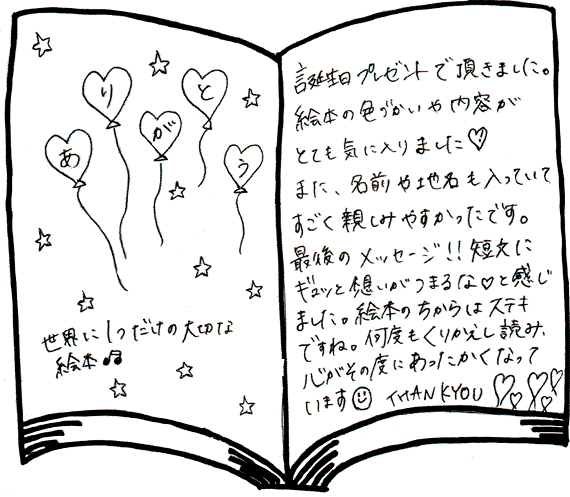 ありがとう
世界に1つだけの大切な
絵本♫
誕生日プレゼントで頂きました。
絵本の色づかいや内容が
とても気に入りました♡
また、名前や地名も入っていて
すごく親しみやすかったです。
最後のメッセージ!!短文に
ギュッと想いがつまるな♡と感じ
ました。絵本のちからはステキ
ですね。何度もくりかえし読み、
心がその度にあったかくなって
います☺ THANKYOU ♡♡♡♡♡